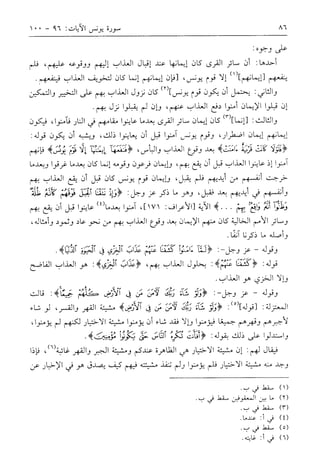 ٨٦
سورة يونس الآيات: ٩٦ - ١٠٠
على وجوه:
أحدها: أن سائر القرى كان إيمانها عند إقبال العذاب إليهم ووقوعه عليهم، فلم
ينفعهم [إيمانهم](١) إلا قوم يونس، [فإن إيمانهم إنما كان لتخويف العذاب فينفعهم.
والثاني: يحتمل أن يكون قوم يونس](٢) كان نزول العذاب بهم على التخيير والتمكين
إن قبلوا الإيمان أمنوا دفع العذاب عنهم، وإن لم يقبلوا نزل بهم.
والثالث: [إنما](٣) كان إيمان سائر القرى بعدما عاينوا مقامهم في النار فآمنوا، فيكون
إيمانهم إيمان اضطرار، وقوم يونس آمنوا قبل أن يعاينوا ذلك، ويشبه أن يكون قوله:
﴿فَلَوْلَا كَانَتْ قَرْيَةٌ ءَامَنَتْ﴾ بعد وقوع العذاب والبأس، ﴿فَنَفَعَهَا إِيمَٰنُهَا إِلَّا قَوْمَ يُونُسَ﴾ فإنهم
آمنوا إذ عاينوا العذاب قبل أن يقع بهم، وإيمان فرعون وقومه إنما كان بعدما غرقوا وبعدما
خرجت أنفسهم من أيديهم فلم يقبل، وإيمان قوم يونس كان قبل أن يقع العذاب بهم
وأنفسهم في أيديهم بعد فقبل، وهو ما ذكر عز وجل: ﴿وَإِذْ نَتَقْنَا الْجَبَلَ فَوْقَهُمْ كَأَنَّهُ ظُلَّةٌ
وَظَنُّوا أَنَّهُ وَاقِعٌ بِهِمْ ...﴾ الآية [الأعراف: ١٧١]، آمنوا بعدما(٤) عاينوا قبل أن يقع بهم
وسائر الأمم الخالية كان منهم الإيمان بعد وقوع العذاب بهم من نحو عاد وثمود وأمثاله،
وأصله ما ذكرنا آنفًا.
وقوله - عز وجل -: ﴿لَمَّا ءَامَنُوا كَشَفْنَا عَنْهُمْ عَذَابَ الْخِزْيِ فِي الْحَيَوٰةِ الدُّنْيَا﴾.
قوله: ﴿كَشَفْنَا عَنْهُمْ﴾: بحلول العذاب بهم، ﴿عَذَابَ الْخِزْيِ﴾: هو العذاب الفاضح
وإلا الخزي هو العذاب.
وقوله - عز وجل -: ﴿وَلَوْ شَاءَ رَبُّكَ لَآمَنَ مَن فِي الْأَرْضِ كُلُّهُمْ جَمِيعًا﴾: قالت
المعتزلة: [قوله](٥): ﴿وَلَوْ شَاءَ رَبُّكَ لَآمَنَ مَن فِي الْأَرْضِ﴾ مشيئة القهر والقسر، لو شاء
لأجبرهم وقهرهم جميعًا فيؤمنوا وإلا فقد شاء أن يؤمنوا مشيئة الاختيار لكنهم لم يؤمنوا،
واستدلوا على ذلك بقوله: ﴿أَفَأَنتَ تُكْرِهُ النَّاسَ حَتَّىٰ يَكُونُوا مُؤْمِنِينَ﴾.
فيقال لهم: إن مشيئة الاختيار هي الظاهرة عندكم ومشيئة الجبر والقهر غائبة(٦)، فإذا
وجد منه مشيئة الاختيار فلم يؤمنوا ولم تنفذ مشيئته فيهم كيف يصدق هو في الإخبار عن
(١) سقط في ب.
(٢) ما بين المعقوفين سقط في ب.
(٣) سقط في ب.
(٤) في أ: عندما.
(٥) سقط في ب.
(٦) في أ: غايته.